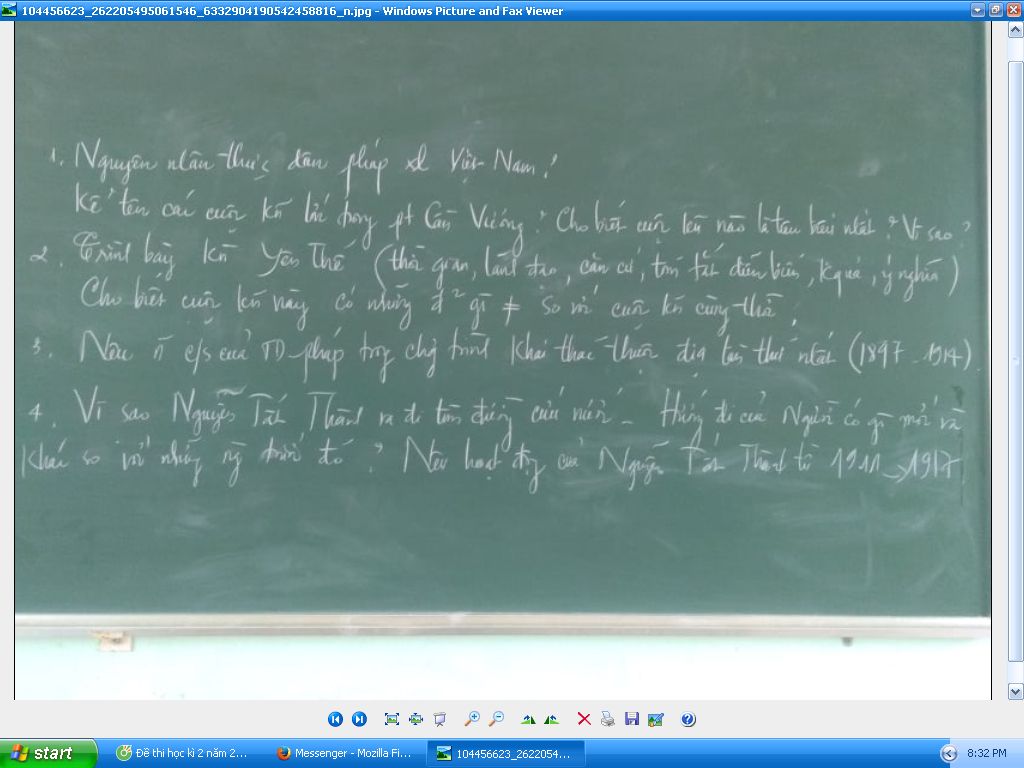 104456623_262205495061546_6332904190542458816_n.jpg - Windows Picture and Fax Viewer
1. Nguyên nhân thực dân pháp xl Việt Nam?
Kể tên các cuộc kn lớn trong pt Cần Vương? Cho biết cuộc kn nào là tiêu biểu nhất? Vì sao?
2. Trình bày kn Yên Thế (thời gian, lãnh đạo, căn cứ, tóm tắt diễn biến, kquả, ý nghĩa)
Cho biết cuộc kn này có những đ² gì ≠ so với cuộc kn cùng thời.
3. Nêu n c/s của TD pháp trong chg trình khai thác thuộc địa lần thứ nhất (1897-1914).
4. Vì sao Nguyễn Tất Thành ra đi tìm đường cứu nước. Hướng đi của Người có gì mới và
khác so với những ng trước đó? Nêu hoạt động của Nguyễn Tất Thành từ 1911→1917
start
Đề thi học kì 2 năm 2...
Messenger - Mozilla Fi...
104456623_2622054...
8:32 PM